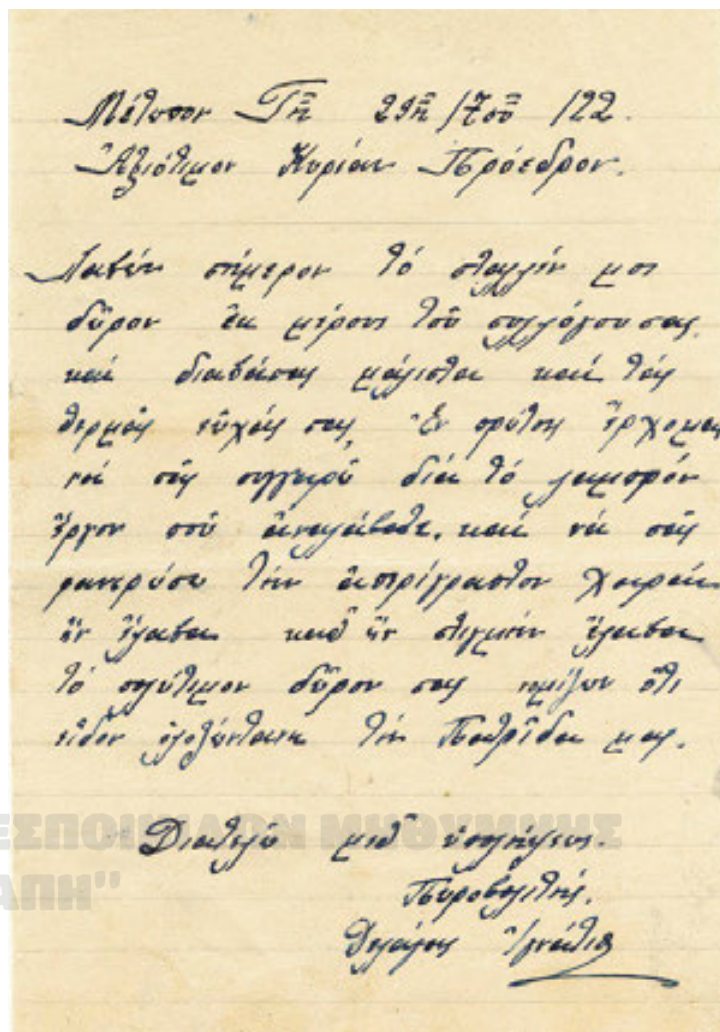 Μέτωπον Τῆ 29ῃ /7οῦ /22.
Ἀξιότιμον Κυρίαν Πρόεδρον.
Λαβὼν σήμερον τὸ σταλλέν μοι
δῶρον ἐκ μέρους τοῦ συλλόγου σας
καὶ διαβάσας μάλιστα καὶ τὰς
θερμὰς εὐχάς σας, Ἐν πρώτοις ἔρχομαι
νὰ σᾶς συγχαρῶ διὰ τὸ λαμπρὸν
ἔργον ποῦ ἀναλάβατε, καὶ νὰ σᾶς
φανερώσω τὴν ἀπερίγραπτον χαρὰν
ἣν ἔλαβα καθ' ἣν στιγμὴν ἔλαβα
τὸ πολύτιμον δῶρον σας νομίζων ὅτι
εἶδον ὁλοζώντανη τὴν Πατρίδα μας.
Διατελῶ μεθ' ὑπολήψεως.
Πυροβολητής.
Ἰγνάτιος
ΕΣΠΟΙΝΙΔΩΝ ΜΗΘΥΜΝΗΣ
ΑΠΗ"